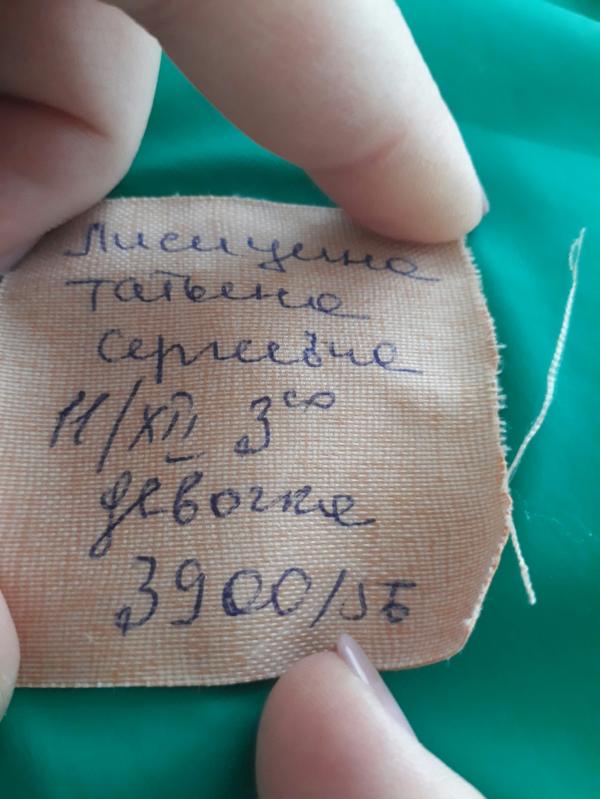 Лисицина
Татьяна
Сергеевна
11/XII 3⁰⁰
девочка
3900/55